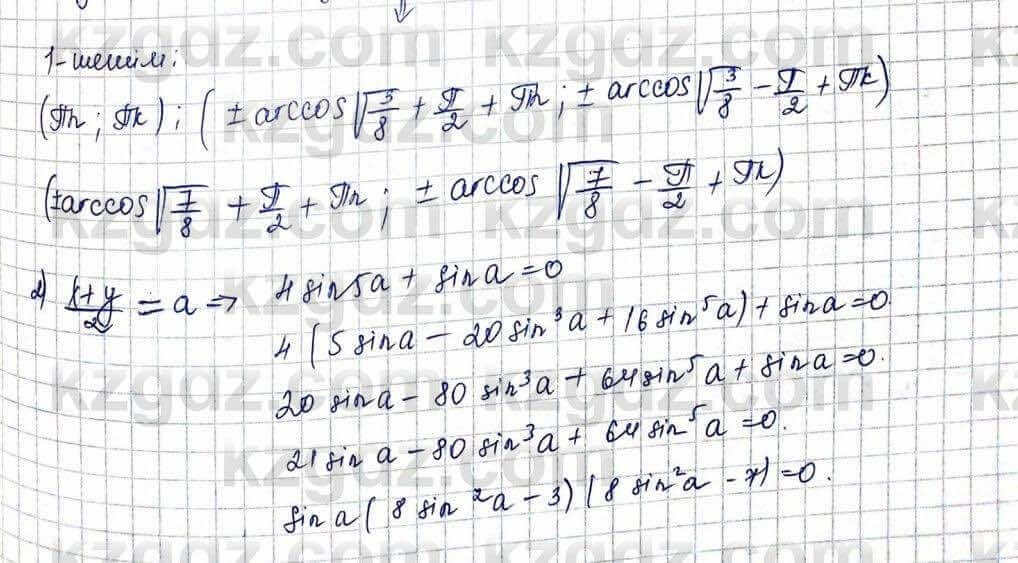 1-шешім:
(πn; πk); (± arccos √3/8 + π/2 + πn; ± arccos √3/8 − π/2 + πk)
(±arccos √7/8 + π/2 + πn; ± arccos √7/8 − π/2 + πk)
2) (x+y)/2 = a ⇒ 4 sin5a + sin a = 0
4 (5 sin a − 20 sin³a + 16 sin⁵a) + sin a = 0.
20 sin a − 80 sin³a + 64 sin⁵a + sin a = 0.
21 sin a − 80 sin³a + 64 sin⁵a = 0.
sin a (8 sin²a − 3) (8 sin²a − 7) = 0.
kzgdz.com